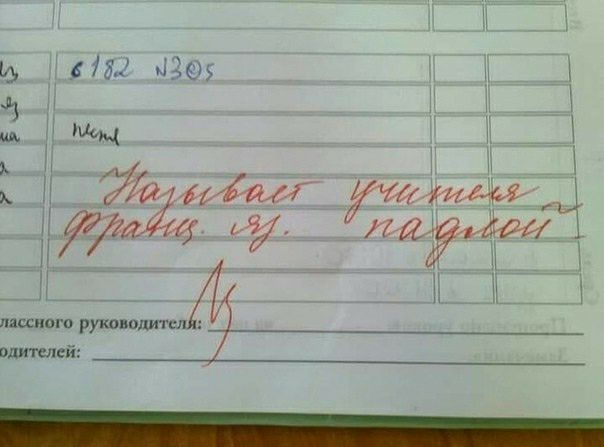 яз с 182 N305
яз
ма пение
а
а Называет учителя
франц. яз. падлой.
лассного руководителя:
одителей: